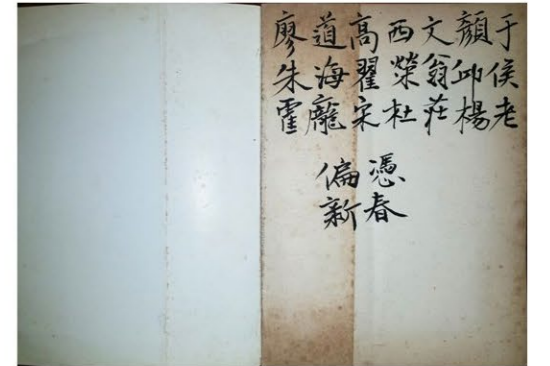 于侯老
顏邱楊
文翁莊
西榮杜
高翟宋
道海龐
廖朱霍
憑春
偏新